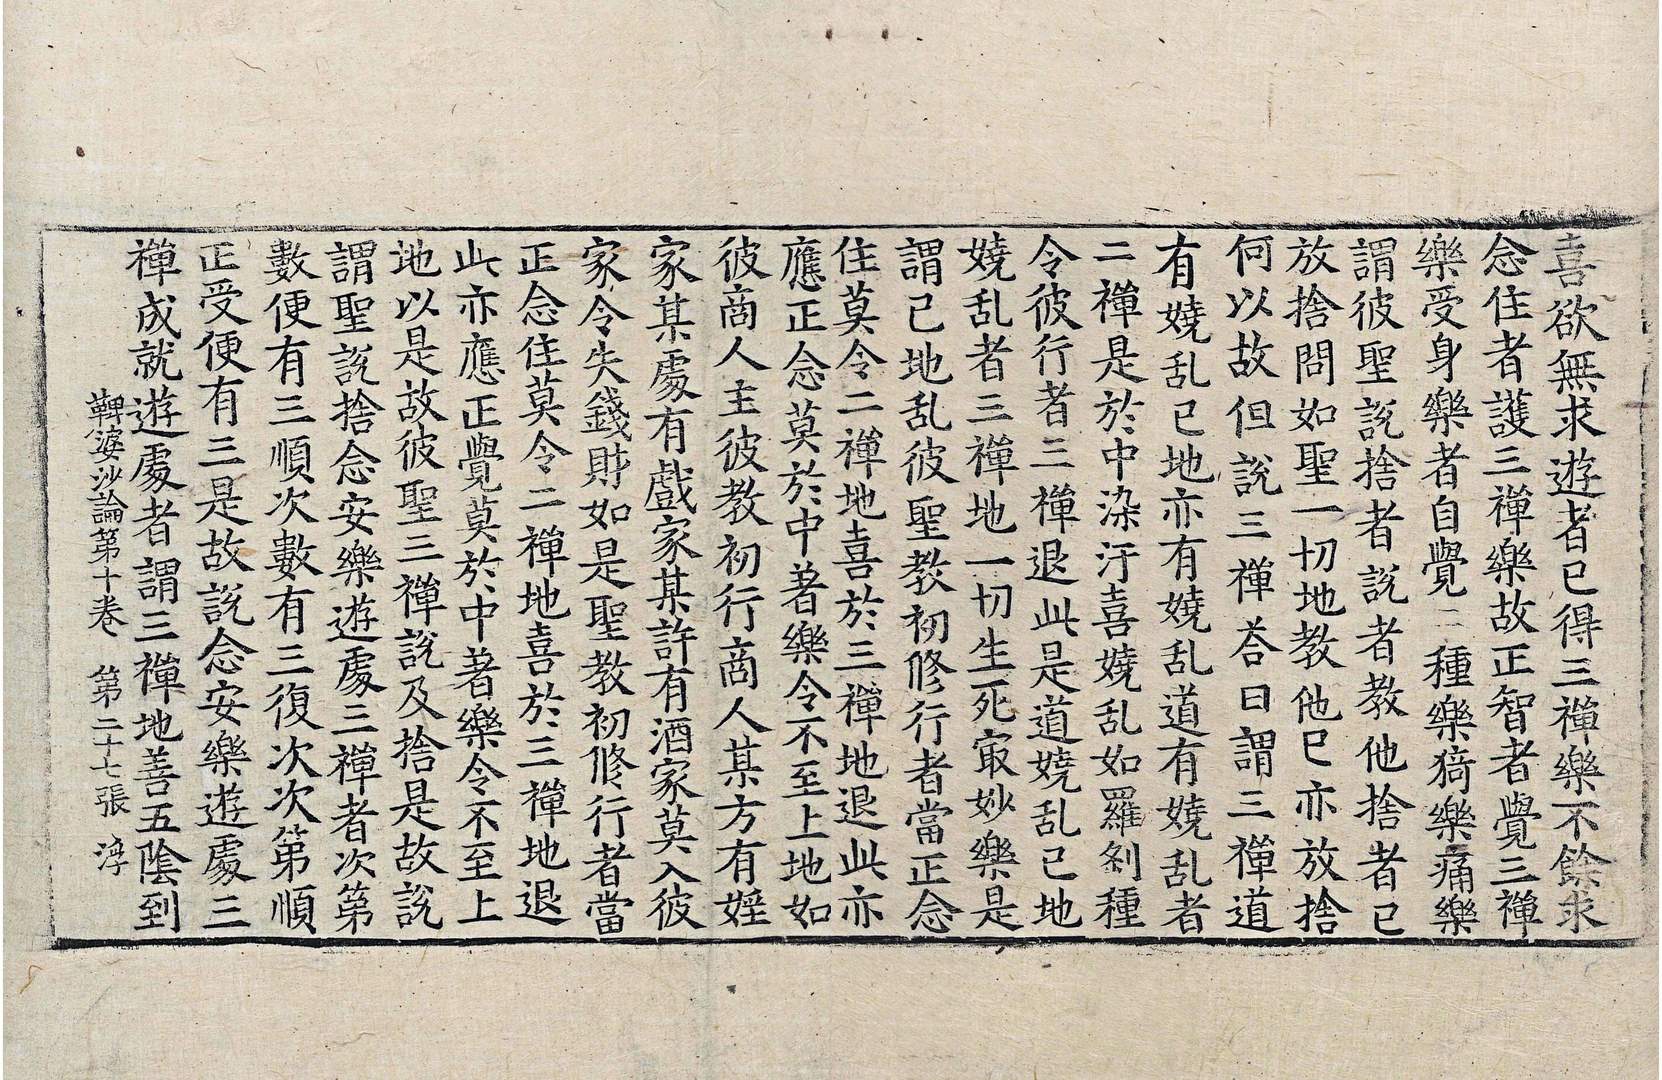 喜欲無求遊者已得三禪樂不餘求
念住者護三禪樂故正智者覺三禪
樂受身樂者自覺二種樂猗樂痛樂
謂彼聖說捨者說者教他捨者已
放捨問如聖一切地教他已亦放捨
何以故但說三禪荅曰謂三禪道
有嬈乱已地亦有嬈乱道有嬈乱者
二禪是於中染汙喜嬈乱如羅剎種
令彼行者三禪退此是道嬈乱已地
嬈乱者三禪地一切生死㝡妙樂是
謂已地乱彼聖教初修行者當正念
住莫令二禪地喜於三禪地退此亦
應正念莫於中著樂令不至上地如
彼商人主彼教初行商人某方有婬
家某處有戲家某許有酒家莫入彼
家令失錢財如是聖教初修行者當
正念住莫令二禪地喜於三禪地退
此亦應正覺莫於中著樂令不至上
地以是故彼聖三禪說及捨是故說
謂聖說捨念安樂遊處三禪者次第
數便有三順次數有三復次次第順
正受便有三是故說念安樂遊處三
禪成就遊處者謂三禪地善五陰到
鞞婆沙論第十卷 第二十七張 淳